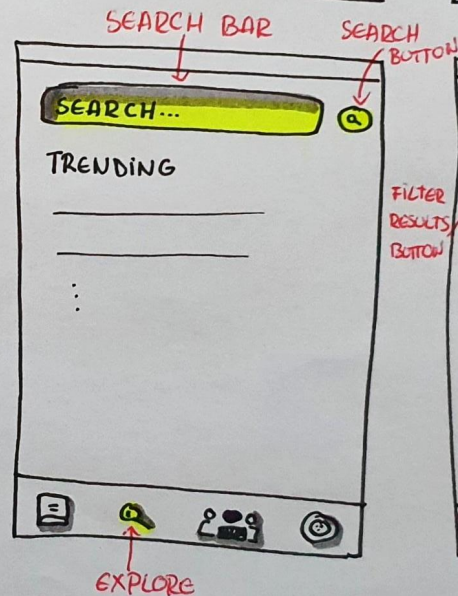 SEARCH BAR
SEARCH
BUTTON
SEARCH...
TRENDING
FILTER
RESULTS
BUTTON
EXPLORE